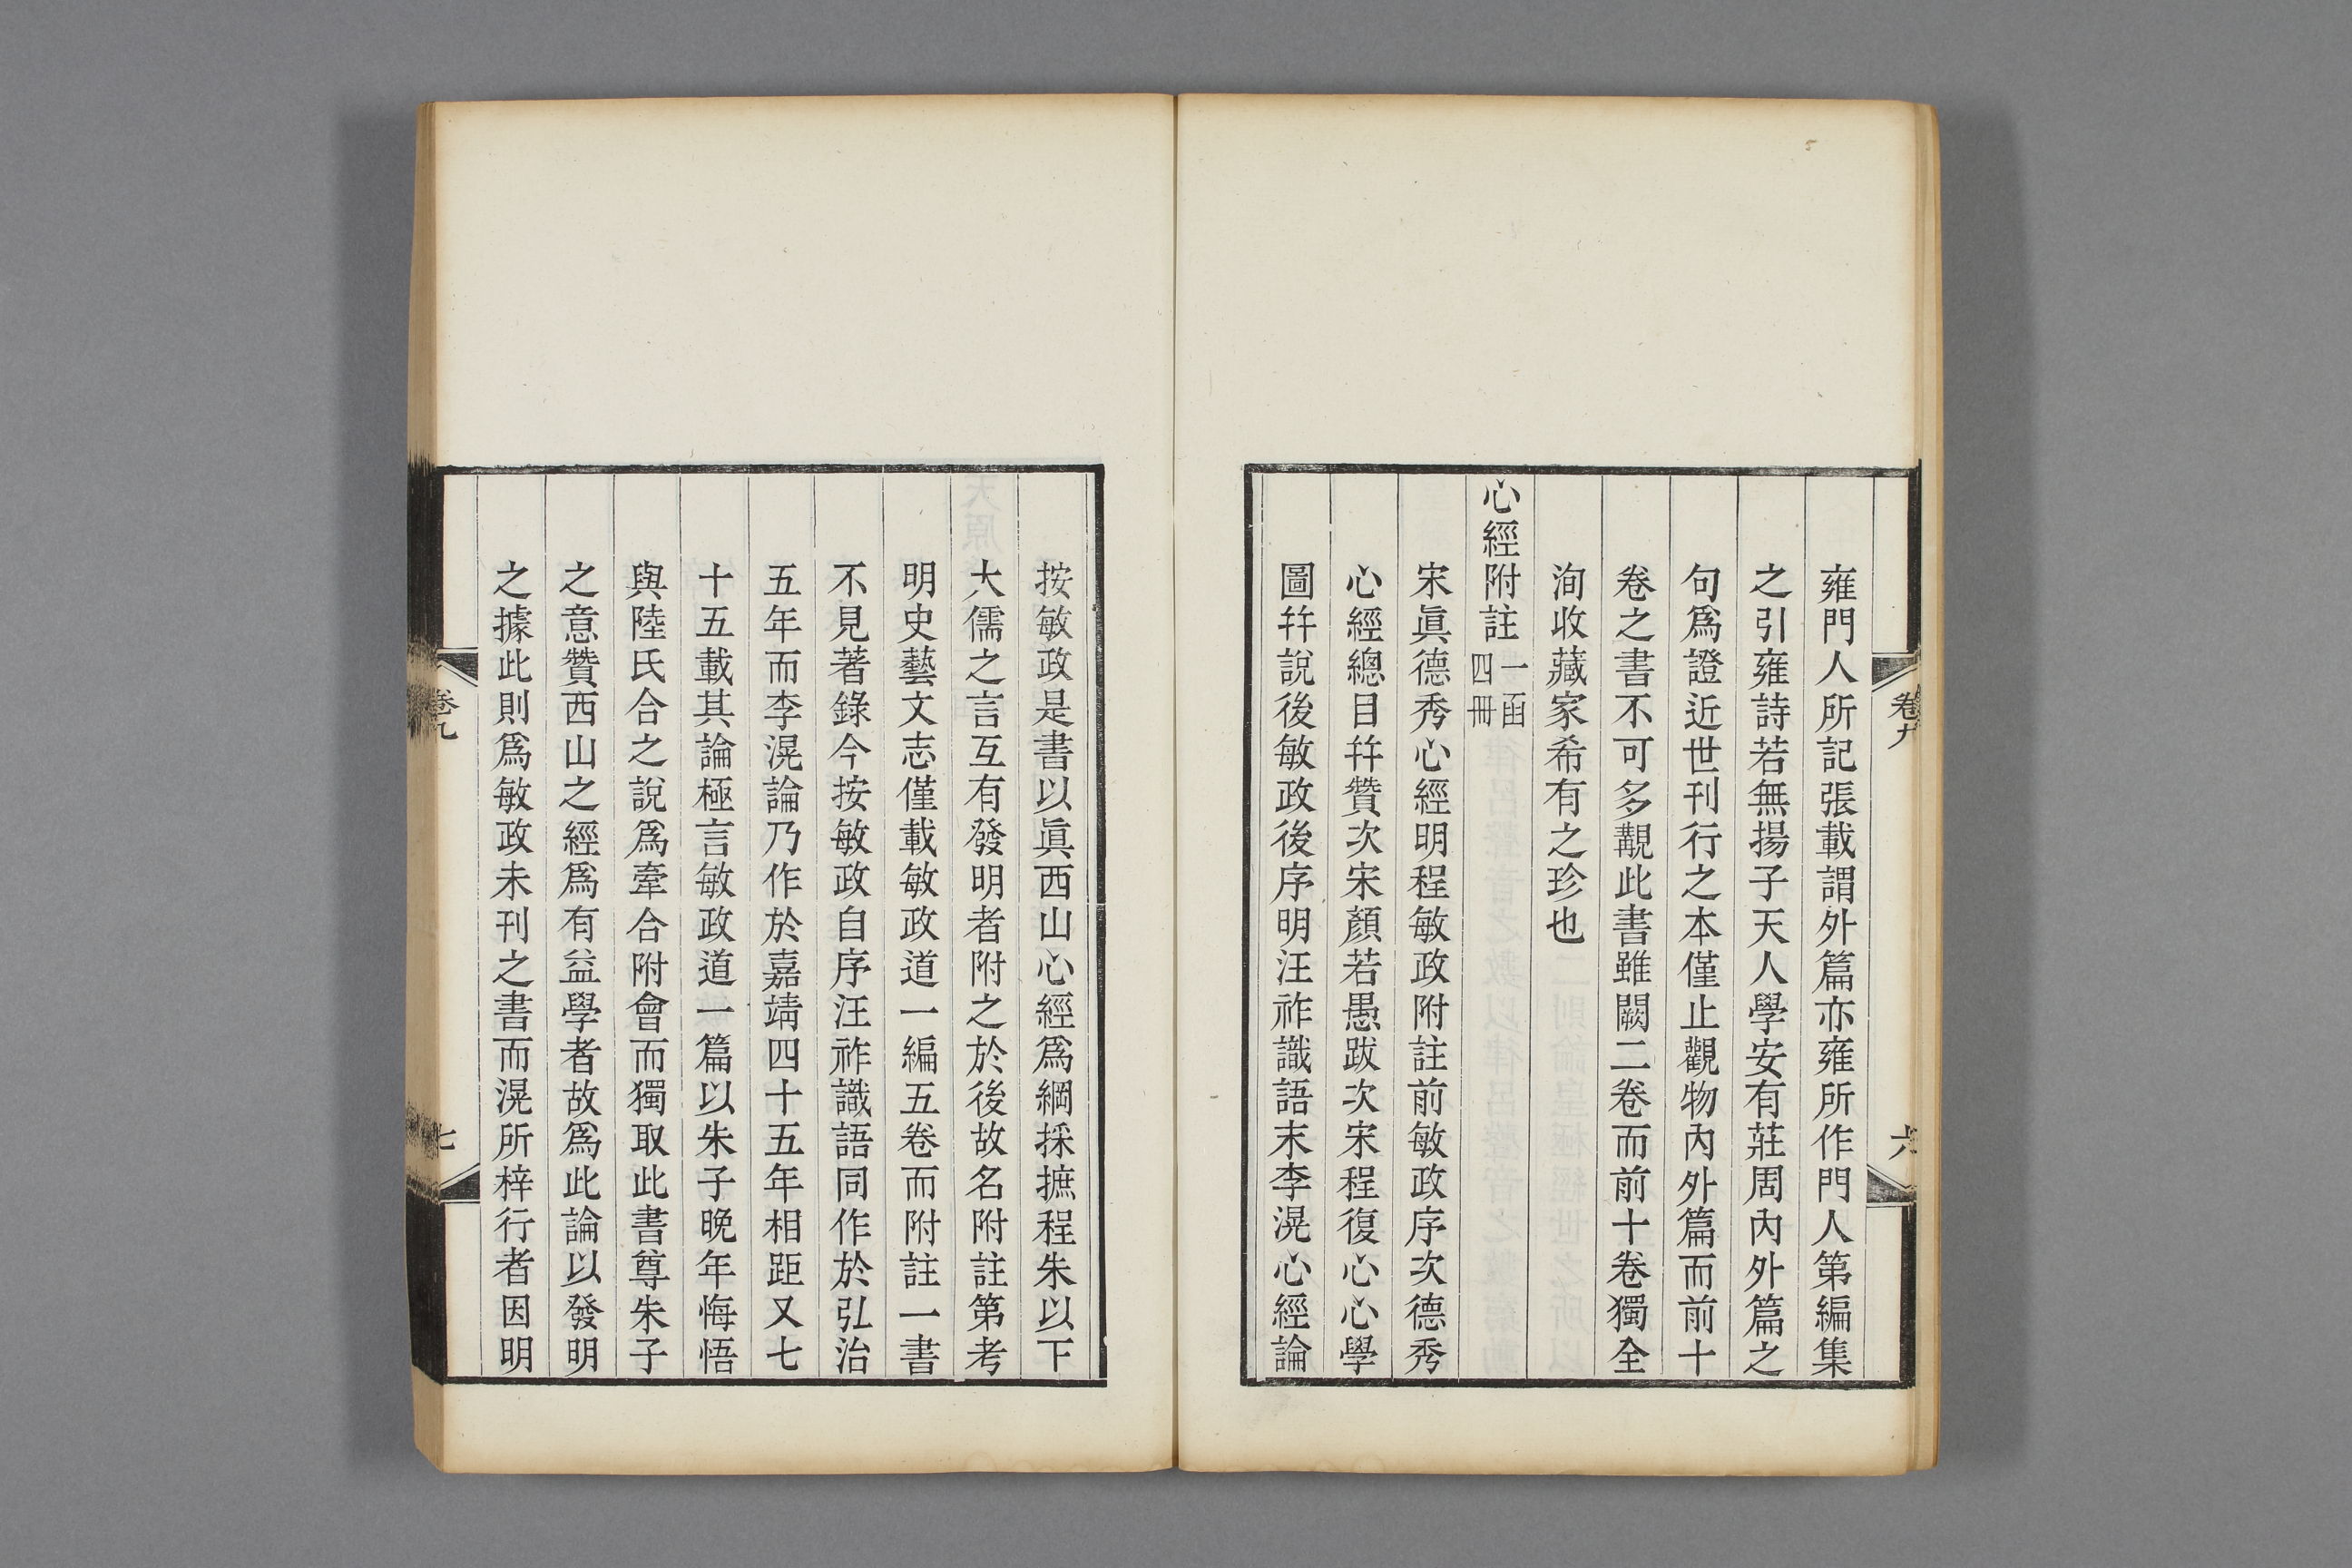 卷九
六
雍門人所記張載謂外篇亦雍所作門人第編集
之引雍詩若無揚子天人學安有莊周內外篇之
句爲證近世刊行之本僅止觀物內外篇而前十
卷之書不可多覯此書雖闕二卷而前十卷獨全
洵收藏家希有之珍也
心經附註一函四冊
宋眞德秀心經明程敏政附註前敏政序次德秀
心經總目幷贊次宋顏若愚跋次宋程復心心學
圖幷說後敏政後序明汪祚識語末李滉心經論
按敏政是書以眞西山心經爲綱採摭程朱以下
大儒之言互有發明者附之於後故名附註第考
明史藝文志僅載敏政道一編五卷而附註一書
不見著錄今按敏政自序汪祚識語同作於弘治
五年而李滉論乃作於嘉靖四十五年相距又七
十五載其論極言敏政道一篇以朱子晚年悔悟
與陸氏合之說爲牽合附會而獨取此書尊朱子
之意贊西山之經爲有益學者故爲此論以發明
之據此則爲敏政未刊之書而滉所梓行者因明
卷九
七